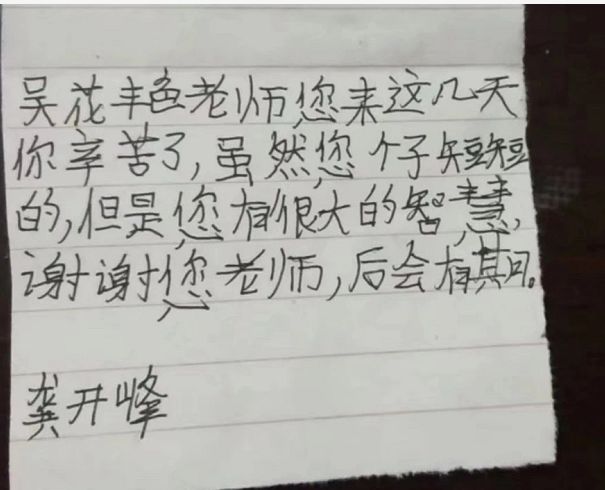 吴花艳老师您来这几天
你辛苦了,虽然您个子短短
的,但是您有很大的智慧,
谢谢您老师,后会有期。
龚开峰